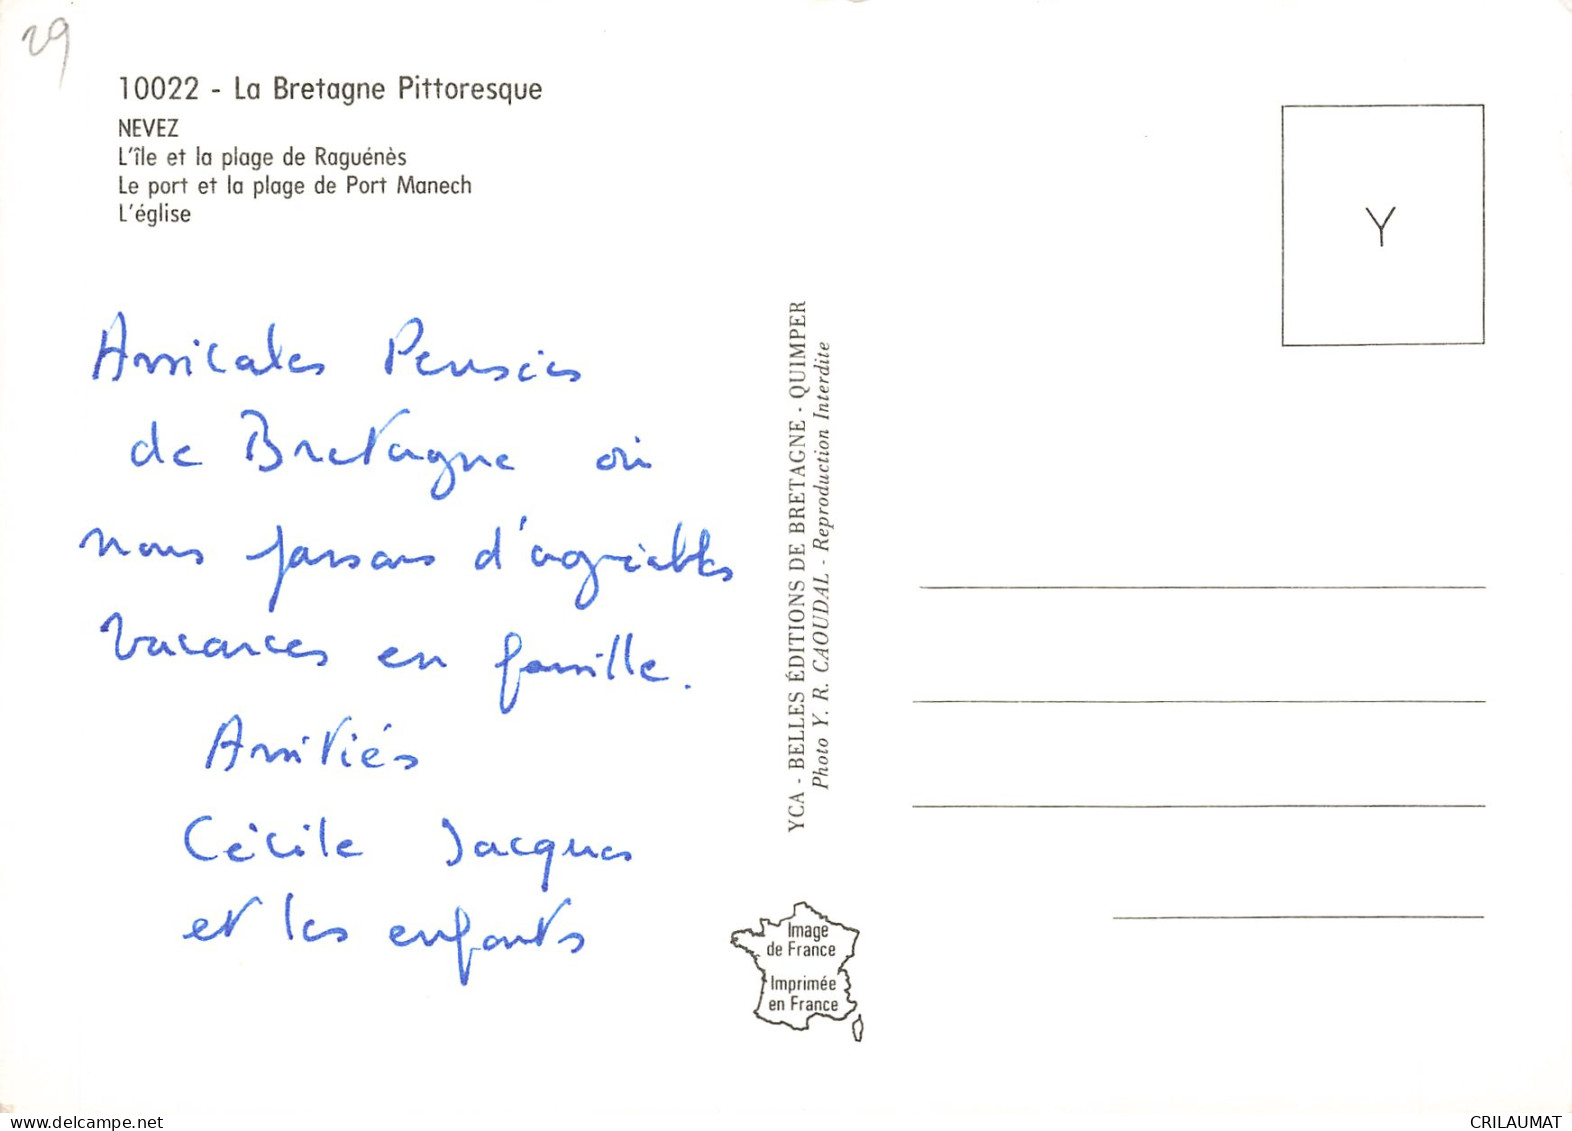 29
10022 - La Bretagne Pittoresque
NEVEZ
L'île et la plage de Raguénès
Le port et la plage de Port Manech
L'église
Y
Amicales Pensées
de Bretagne où
nous passons d'agréables
vacances en famille.
Amitiés
Cécile Jacques
et les enfants
YCA - BELLES ÉDITIONS DE BRETAGNE - QUIMPER
Photo Y. R. CAOUDAL - Reproduction Interdite
Image
de France
Imprimée
en France
delcampe.net
CRILAUMAT